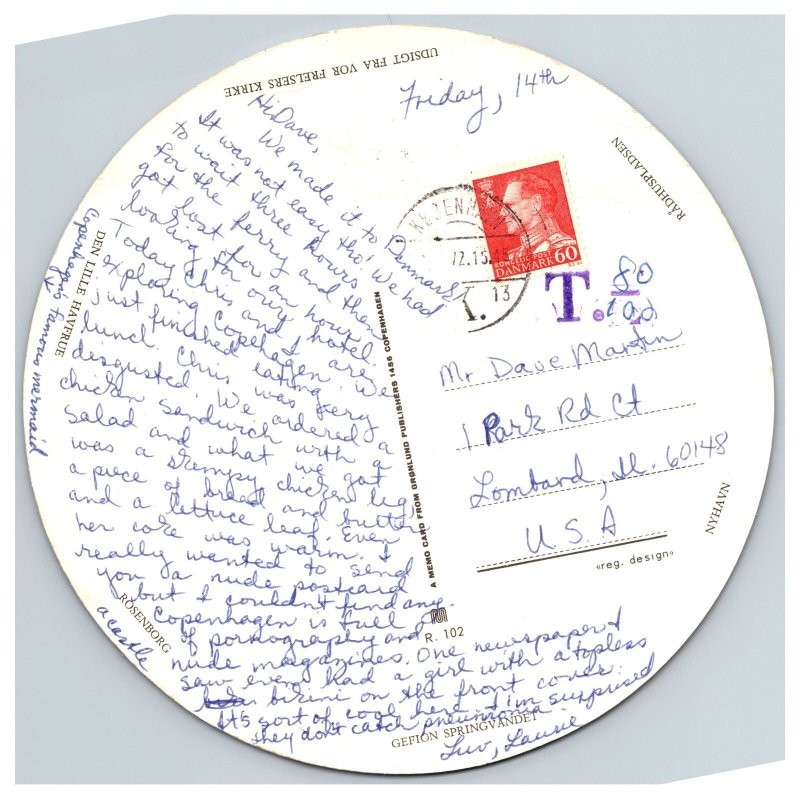 UDSIGT FRA VOR FRELSERS KIRKE
Friday, 14th
RÅDHUSPLADSEN
Hi Dave,
We made it to Denmark,
It was not easy tho! We had
to wait three hours
for the ferry and then
got lost for an hour
looking for our hotel
Today Chris and I are
exploring Copenhagen. We
just finished eating
lunch. Chris was very
disgusted. We ordered a
chicken sandwich with a
salad and what we got
was a skimpy chicken leg,
a piece of bread and butter
and a lettuce leaf. Even
her coke was warm. I
really wanted to send
you a nude postcard
but I couldn't find any -
Copenhagen is full
of pornography and
nude magazines. One newspaper I
saw even had a girl with a topless
bikini on the front cover.
It's sort of cool here & I'm surprised
they don't catch pneumonia.
Luv, Laurie
DEN LILLE HAVFRUE
Copenhagen's famous mermaid
ROSENBORG
a castle
GEFION SPRINGVANDET
NYHAVN
KØBENHAVN
72.15
13
KONGELIG POST
DANMARK 60
T. 80
Mr Dave Martin
1 Park Rd Ct
Lombard, Il. 60148
U.S.A
«reg. design»
A MEMO CARD FROM GRØNLUND PUBLISHERS 1456 COPENHAGEN
R. 102